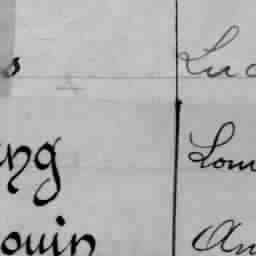 s Luc
ng Lom
ouin An